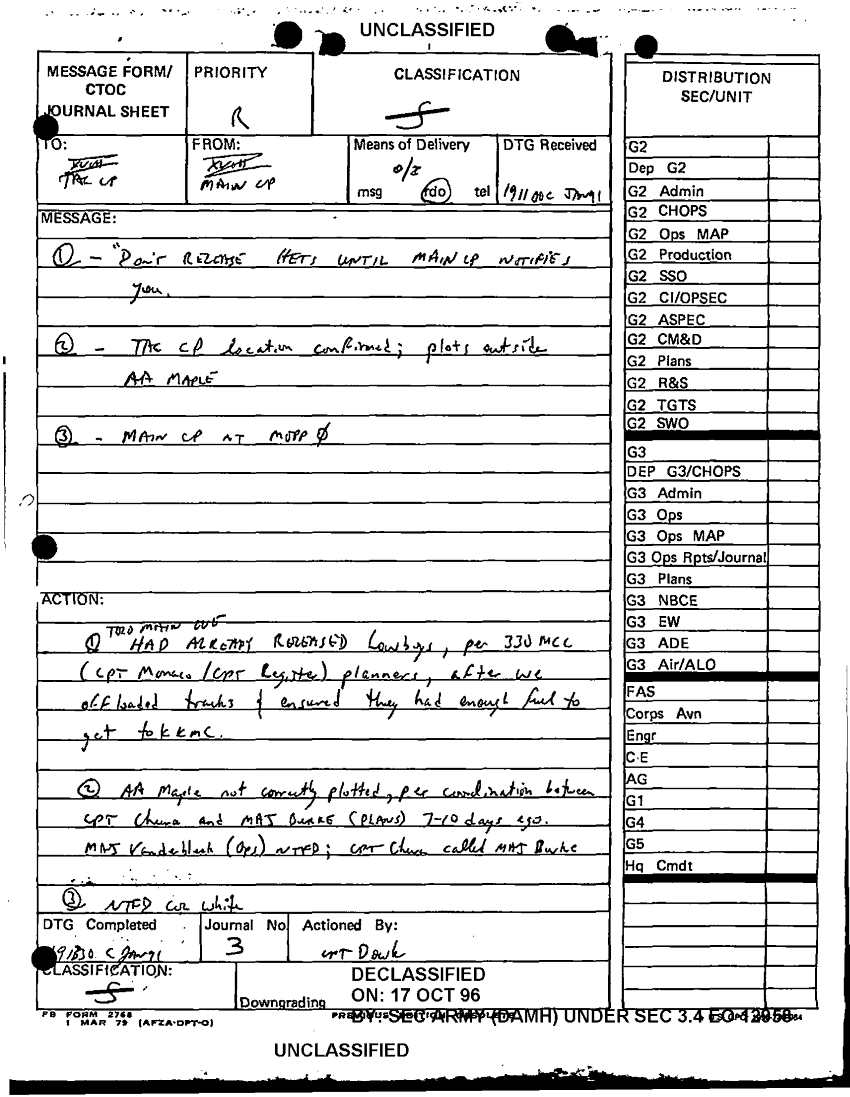 UNCLASSIFIED
MESSAGE FORM/
CTOC
JOURNAL SHEET
PRIORITY
R
CLASSIFICATION
S
DISTRIBUTION
SEC/UNIT
TO:
XVIII
TAC CP
FROM:
XVIII
MAIN CP
Means of Delivery
msg rdo tel
DTG Received
191100C JAN91
MESSAGE:
① - "Don't RELEASE HETS UNTIL MAIN CP NOTIFIES
you.
② - TAC CP location confirmed; plots outside
AA MAPLE
③ - MAIN CP AT MOPP Ø
ACTION:
TOLD MAIN
① HAD ALREADY RELEASED Lowboys, per 330 MCC
(CPT Monaco / CPT Register) planners, after we
offloaded tracks & ensured they had enough fuel to
get to KKMC.
② AA Maple not correctly plotted, per coordination between
CPT and MAJ BURKE (PLANS) 7-10 days ago.
MAJ (Ops) NTFD; CPT called MAJ Burke
③ NTFD White
DTG Completed
191830 C JAN91
Journal No.
3
Actioned By:
CPT
CLASSIFICATION:
S
Downgrading
DECLASSIFIED
ON: 17 OCT 96
BY: SEC ARMY (DAMH) UNDER SEC 3.4 EO 12958
FB FORM 2768
1 MAR 79 (AFZA-DPT-O)
PREVIOUS EDITION OBSOLETE
UNCLASSIFIED
G2
Dep G2
G2 Admin
G2 CHOPS
G2 Ops MAP
G2 Production
G2 SSO
G2 CI/OPSEC
G2 ASPEC
G2 CM&D
G2 Plans
G2 R&S
G2 TGTS
G2 SWO
G3
DEP G3/CHOPS
G3 Admin
G3 Ops
G3 Ops MAP
G3 Ops Rpts/Journal
G3 Plans
G3 NBCE
G3 EW
G3 ADE
G3 Air/ALO
FAS
Corps Avn
Engr
C-E
AG
G1
G4
G5
Hq Cmdt